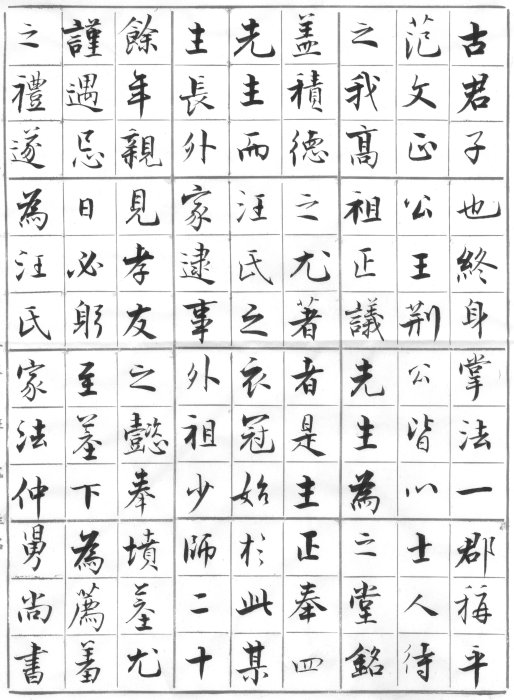 古君子也終身掌法一郡稱平
范文正公王荆公皆以士人待
之我高祖正議先生為之堂銘
盖積德之尤著者是生正奉四
先生而汪氏之衣冠始於此某
生長外家逮事外祖少師二十
餘年親見孝友之懿奉墳墓尤
謹遇忌日必躬至墓下為薦羞
之禮遂為汪氏家法仲舅尚書